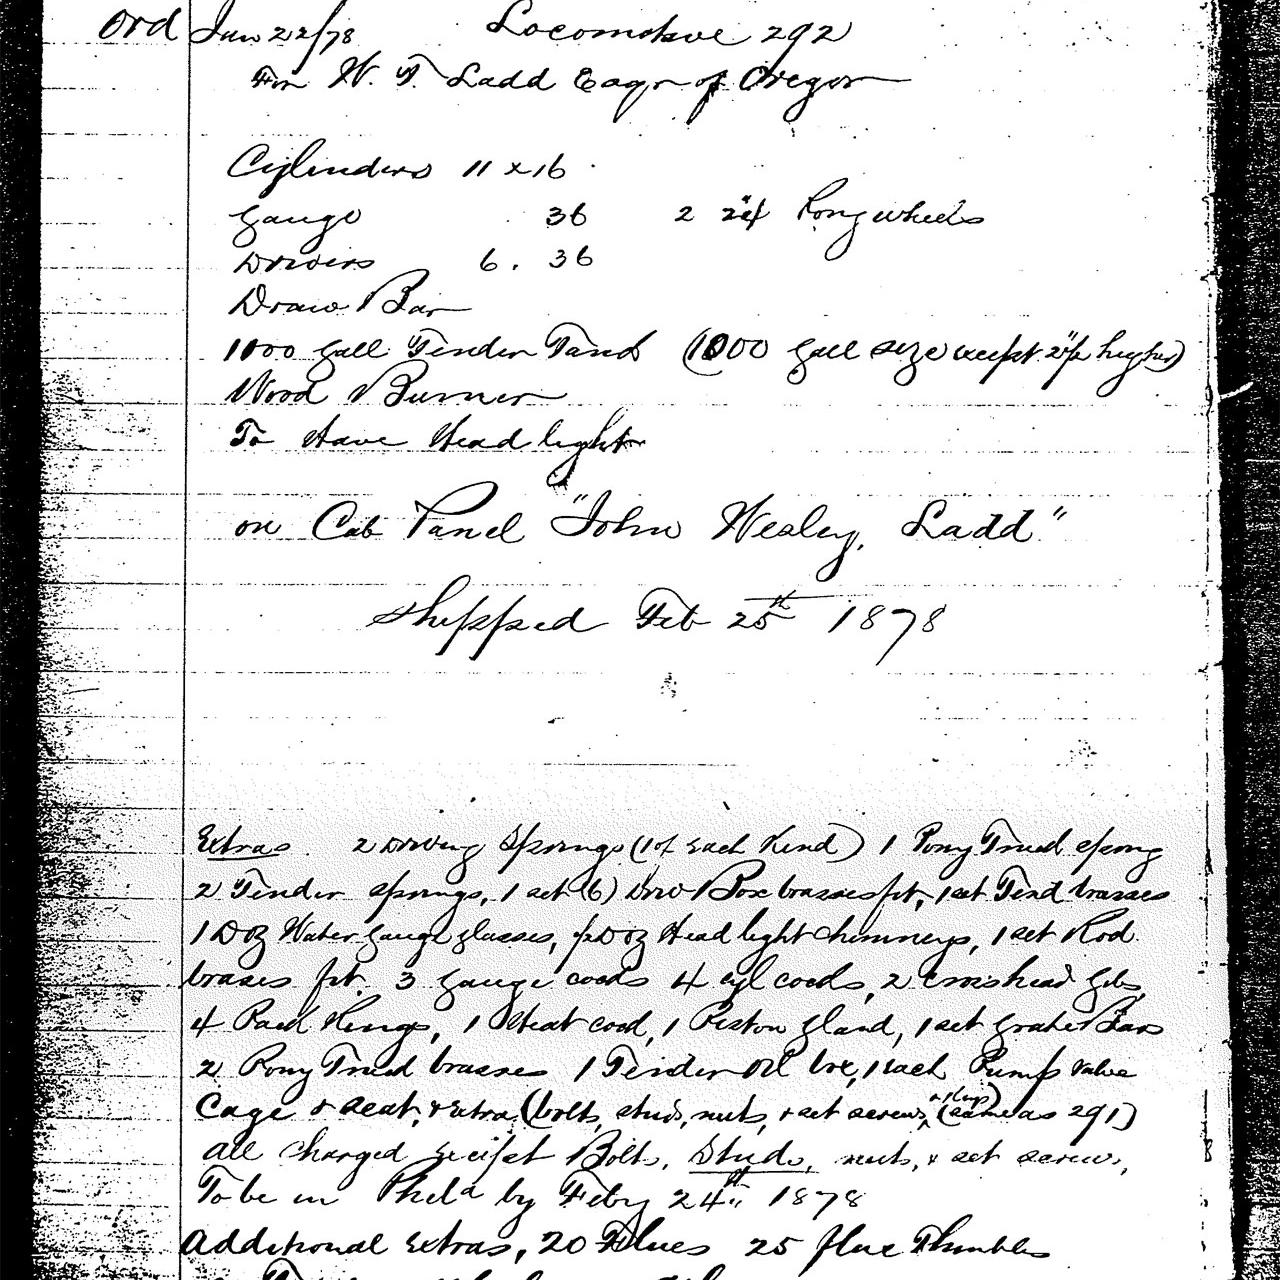 Ord Jan 22/78 Locomotive 292
For W. S. Ladd Esqr of Oregon
Cylinders 11 x 16
Gauge 36 2 24" Pony wheels
Drivers 6. 36
Draw Bar
1100 Gall Tender Tank (1000 Gall size except 2"1/2 higher)
Wood Burner
To Have Head light
on Cab Panel "John Wesley Ladd"
Shipped Feb 25th 1878
Extras 2 Driving Springs (1 of Each Kind) 1 Pony Truck spring
2 Tender springs, 1 set (6) Driv Box brasses fit, 1 set Tend brasses
1 Doz Water Gauge glasses, 1/2 Doz Head light chimneys, 1 set Rod
brases fit. 3 gauge cocks 4 cyl cocks, 2 crosshead Gibs,
4 Pack Rings, 1 Heat cock, 1 Piston gland, 1 set Grate Bars
2 Pony Truck brasses 1 Tender Oil box, 1 each Pump valve
Cage & seat, & extra (bolts, studs, nuts, & set screws, (same as 291)
all charged Except Bolts, Studs, nuts, & set screws,
To be in Phila by Feby 24th 1878
Additional Extras, 20 Flues 25 flue Thimbles